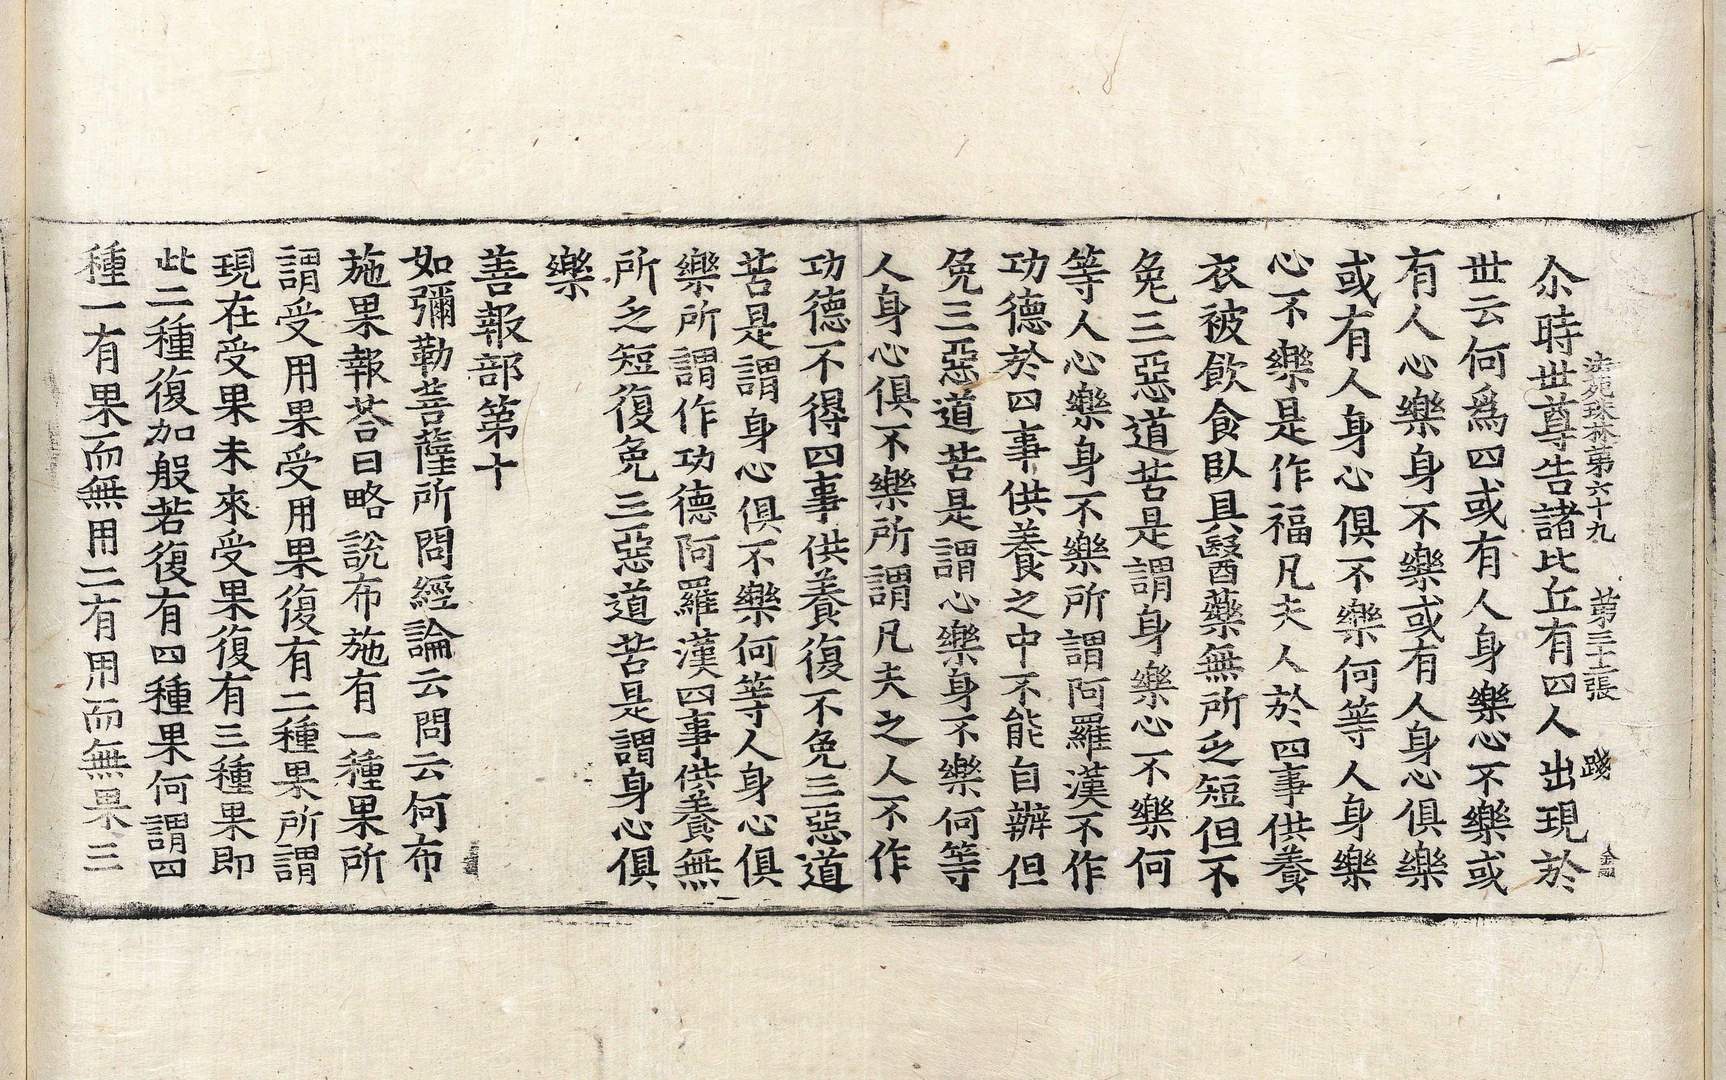 尒時世尊告諸比丘有四人出現於
法苑珠林第六十九　第三十二張　踐
世云何爲四或有人身樂心不樂或
有人心樂身不樂或有人身心俱樂
或有人身心俱不樂何等人身樂
心不樂是作福凡夫人於四事供養
衣被飲食臥具醫藥無所乏短但不
免三惡道苦是謂身樂心不樂何
等人心樂身不樂所謂阿羅漢不作
功德於四事供養之中不能自辦但
免三惡道苦是謂心樂身不樂何等
人身心俱不樂所謂凡夫之人不作
功德不得四事供養復不免三惡道
苦是謂身心俱不樂何等人身心俱
樂所謂作功德阿羅漢四事供養無
所乏短復免三惡道苦是謂身心俱
樂
善報部第十
如彌勒菩薩所問經論云問云何布
施果報荅曰略說布施有一種果所
謂受用果受用果復有二種果所謂
現在受果未來受果復有三種果即
此二種復加般若復有四種果何謂四
種一有果而無用二有用而無果三